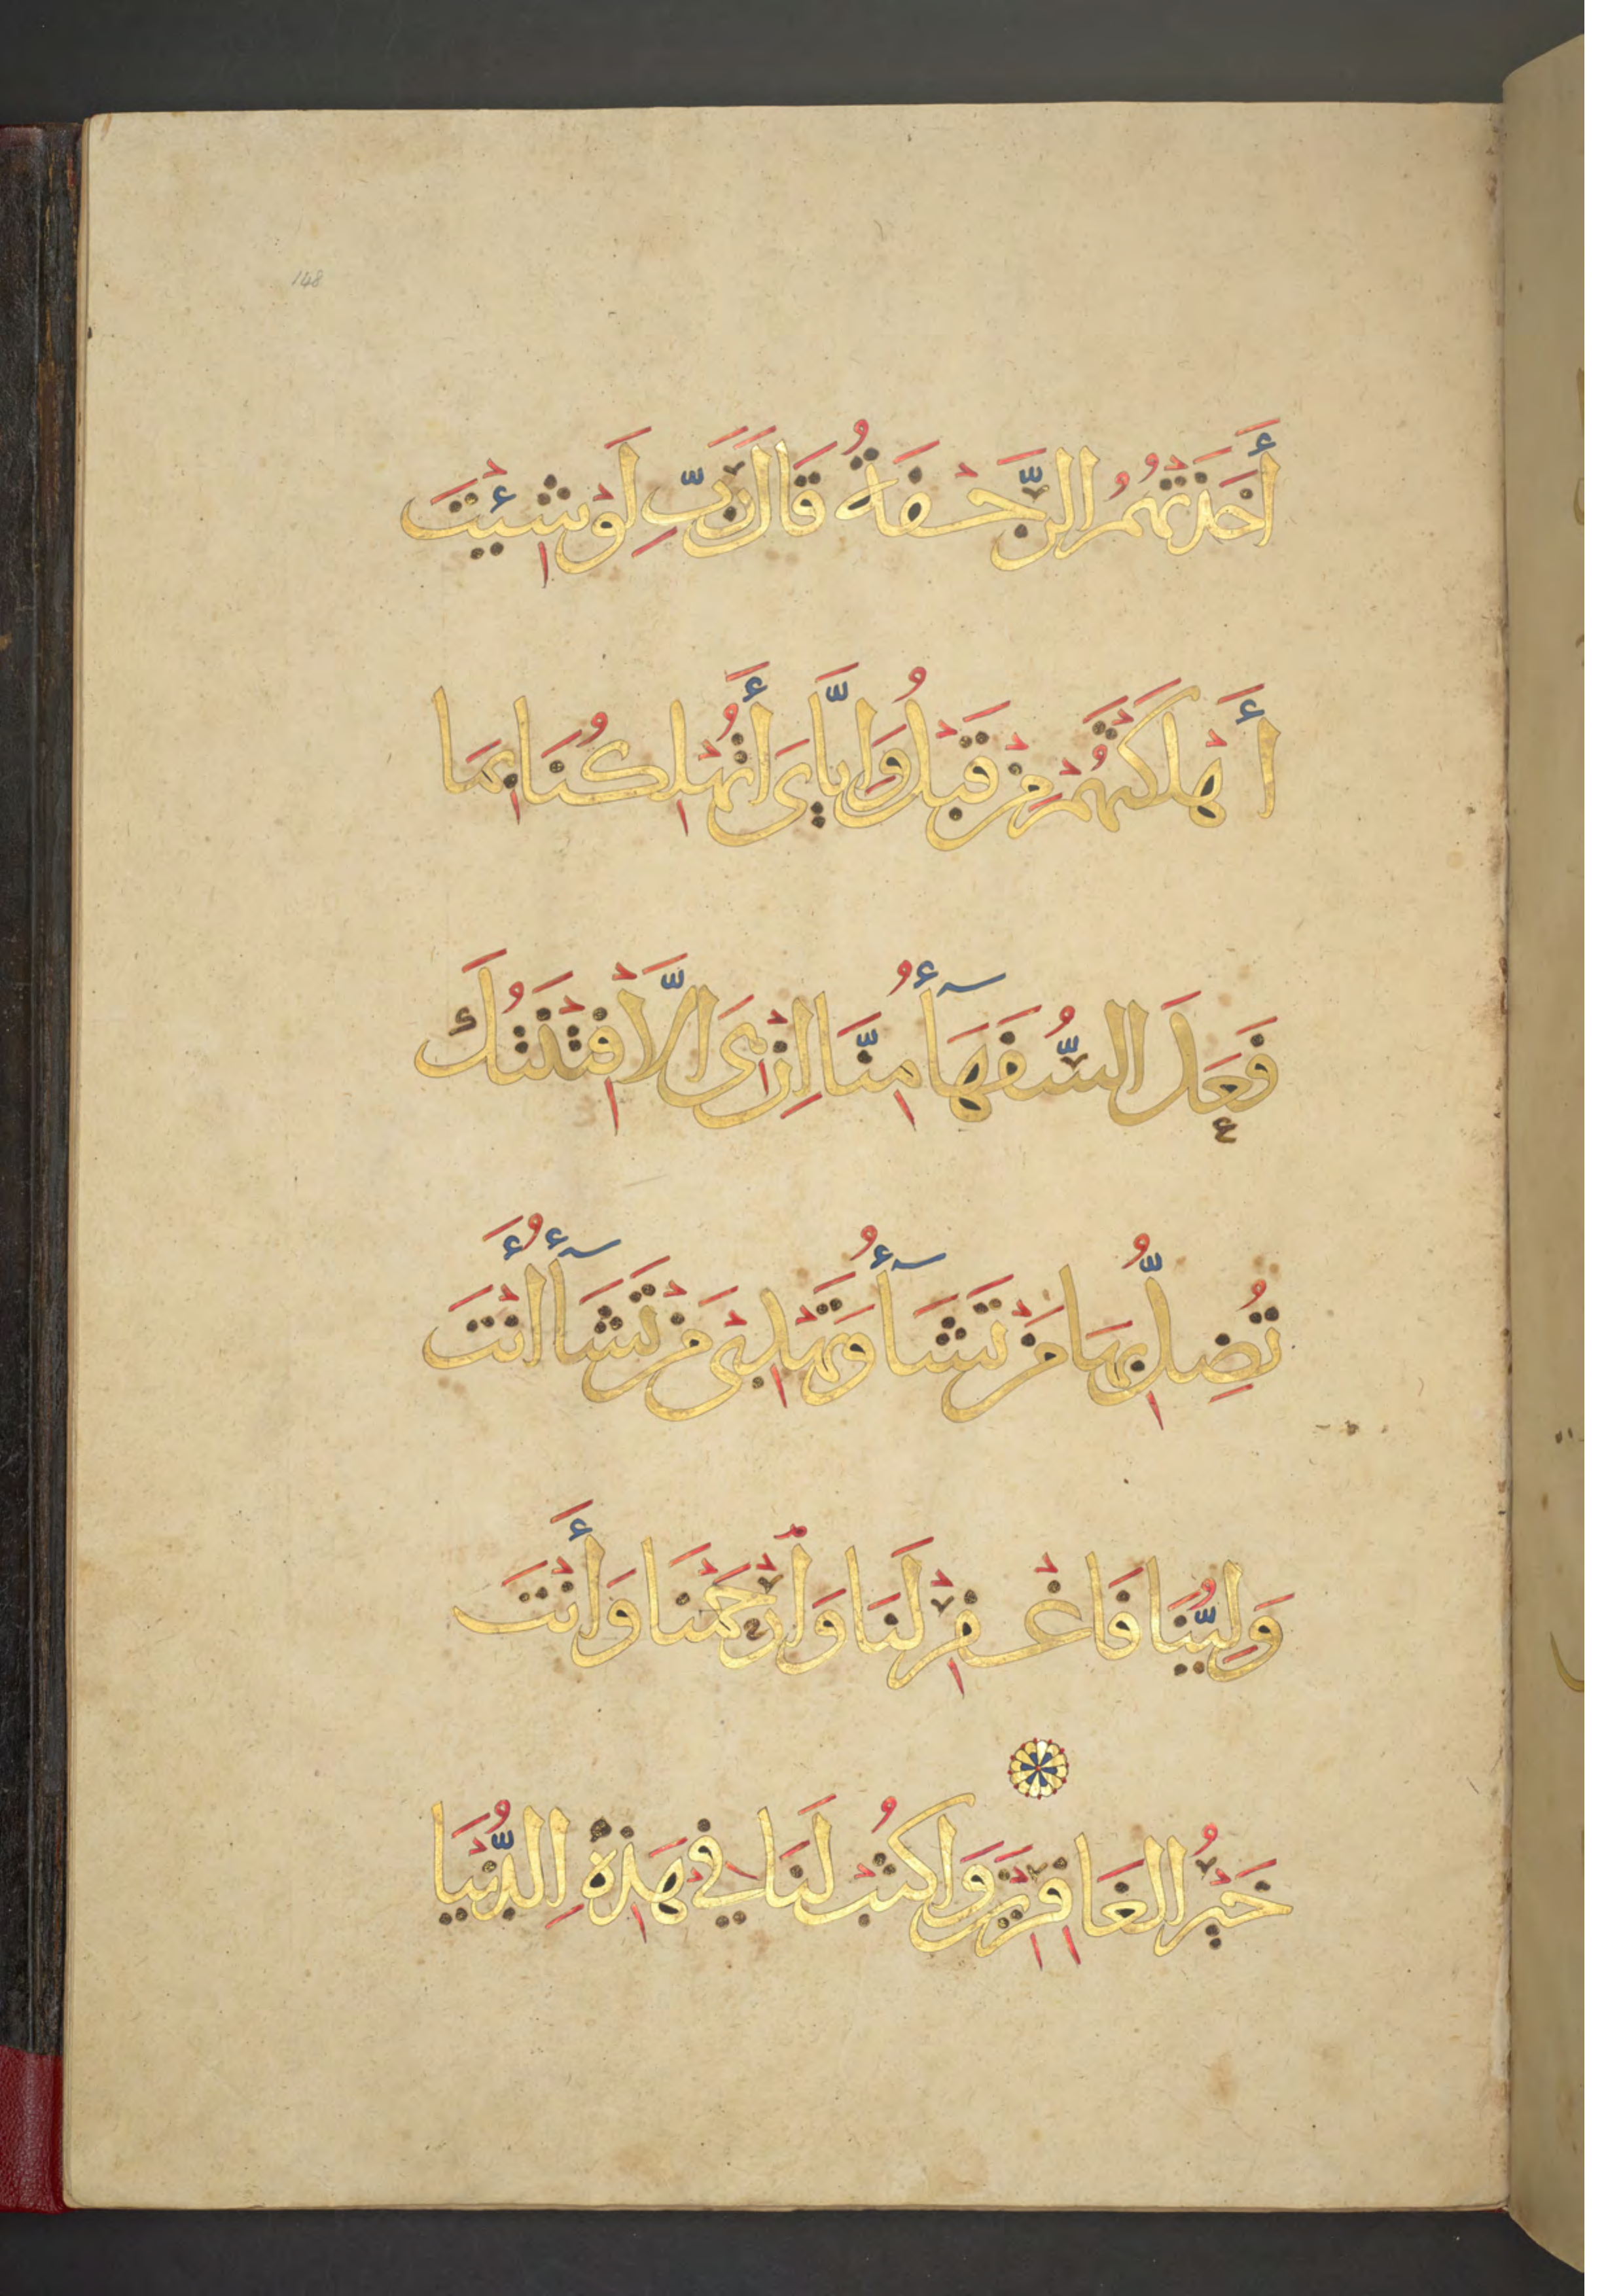 148
أَخَذَتْهُمُ الرَّجْفَةُ قَالَ رَبِّ لَوْ شِئْتَ
أَهْلَكْتَهُمْ مِنْ قَبْلُ وَإِيَّايَ أَتُهْلِكُنَا بِمَا
فَعَلَ السُّفَهَآأُ مِنَّا إِنْ هِيَ إِلَّا فِتْنَتُكَ
تُضِلُّ بِهَا مَنْ تَشَآأُ وَتَهْدِي مَنْ تَشَآأُ أَنْتَ
وَلِيُّنَا فَاغْفِرْ لَنَا وَارْحَمْنَا وَأَنْتَ
خَيْرُ الغَافِرِينَ وَاكْتُبْ لَنَا فِي هَذِهِ الدُّنْيَا